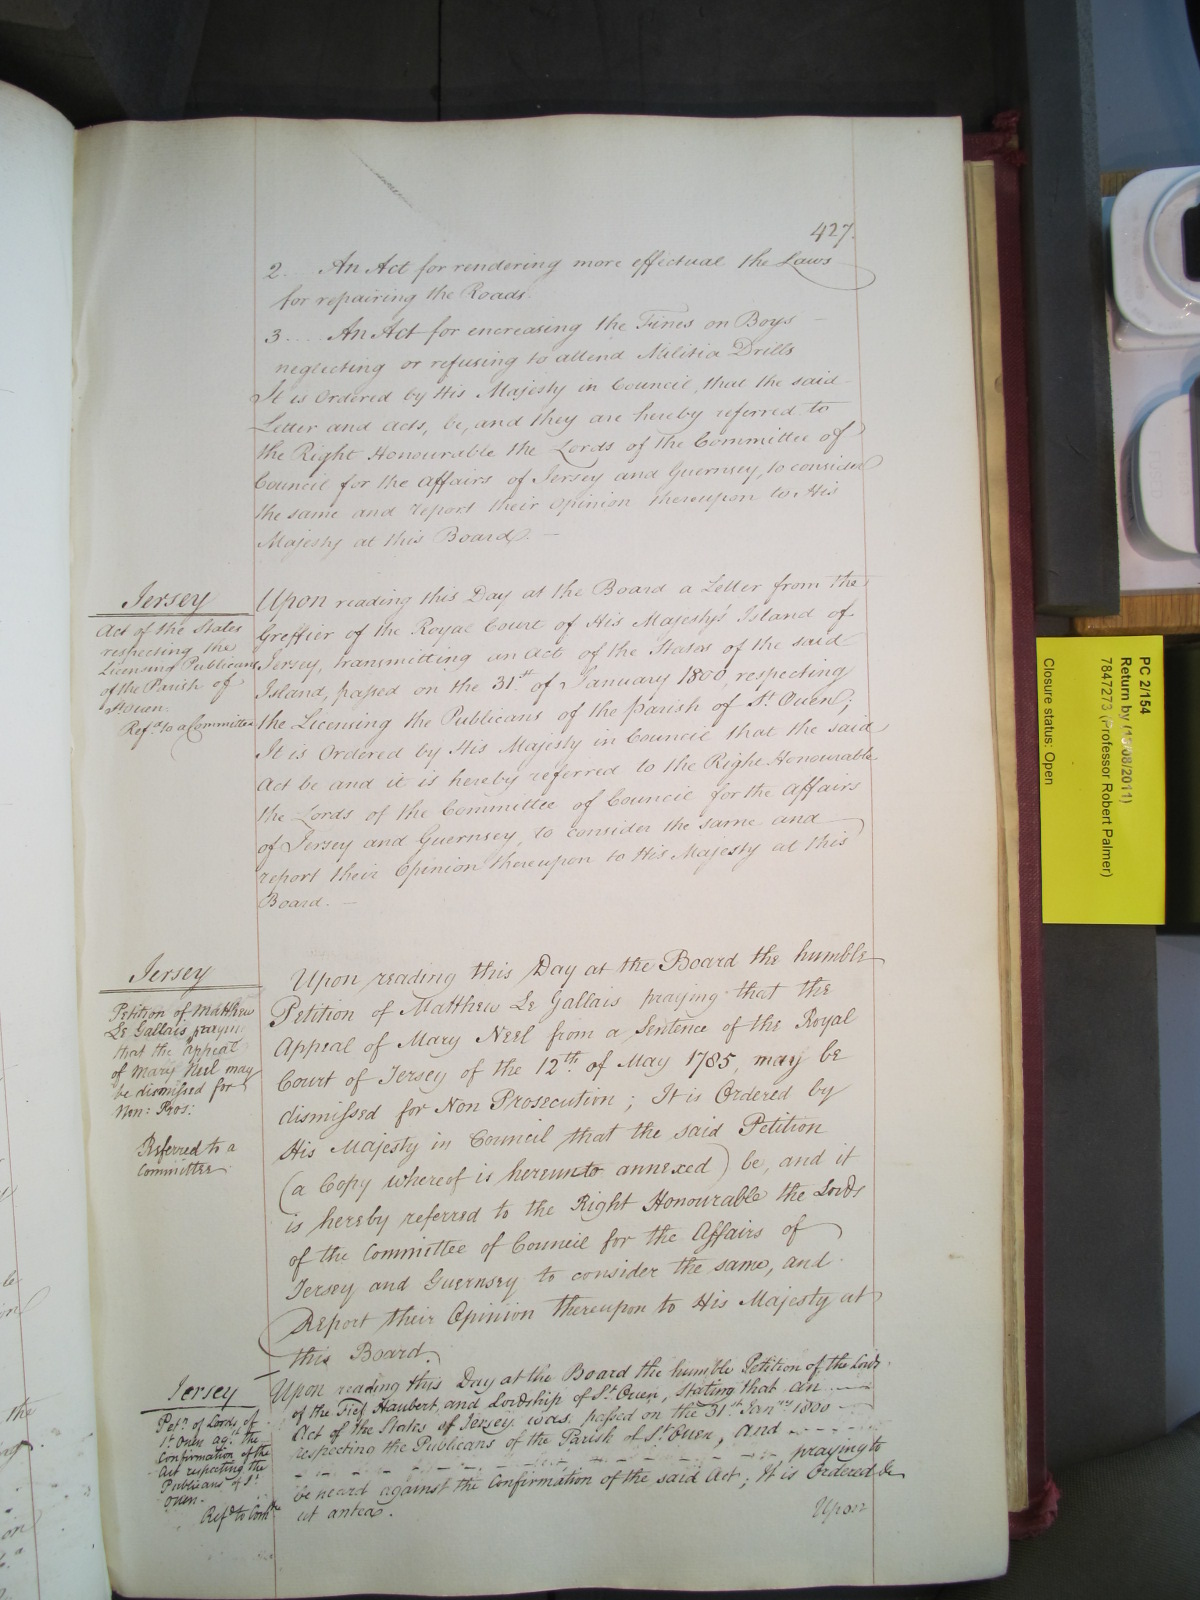 427.
2. An Act for rendering more effectual the Laws
for repairing the Roads.
3.... An Act for encreasing the Fines on Boys
neglecting or refusing to attend Militia Drills
It is Ordered by His Majesty in Council, that the said
Letter and Acts, be, and they are hereby referred to
the Right Honourable the Lords of the Committee of
Council for the Affairs of Jersey and Guernsey, to consider
the same and report their Opinion thereupon to His
Majesty at this Board. —
Jersey
Act of the States
respecting the
Licensing Publicans
of the Parish of
St. Ouen.
Refd. to a Committee
Upon reading this Day at the Board a Letter from the
Greffier of the Royal Court of His Majesty's Island of
Jersey, transmitting an Act of the States of the said
Island, passed on the 31st. of January 1800, respecting
the Licensing the Publicans of the parish of St. Ouen;
It is Ordered by His Majesty in Council that the said
Act be and it is hereby referred to the Right Honourable
the Lords of the Committee of Council for the Affairs
of Jersey and Guernsey, to consider the same and
report their Opinion thereupon to His Majesty at this
Board. —
Jersey
Petition of Matthew
Le Gallais praying
that the Appeal
of Mary Neel may
be dismissed for
Non: Pros:
Referred to a
Committee.
Upon reading this Day at the Board the humble
Petition of Matthew Le Gallais praying that the
Appeal of Mary Neel from a Sentence of the Royal
Court of Jersey of the 12th. of May 1785, may be
dismissed for Non Prosecution; It is Ordered by
His Majesty in Council that the said Petition
(a Copy whereof is hereunto annexed) be, and it
is hereby referred to the Right Honourable the Lords
of the Committee of Council for the Affairs of
Jersey and Guernsey to consider the same, and
Report their Opinion thereupon to His Majesty at
this Board.
Jersey
Petn. of Lords of
St. Ouen agst. the
Confirmation of the
Act respecting the
Publicans of St.
Ouen.
Refd. to Comtte
Upon reading this Day at the Board the humble Petition of the Lords
of the Fief Haubert and Lordship of St. Ouen, stating that an
Act of the States of Jersey was passed on the 31st. Janry 1800
respecting the Publicans of the Parish of St. Ouen, and
praying to
be heard against the Confirmation of the said Act; It is Ordered &c
ut antea.
Upon
PC 2/154
Return by (13/08/2011)
7847273 (Professor Robert Palmer)
Closure status: Open